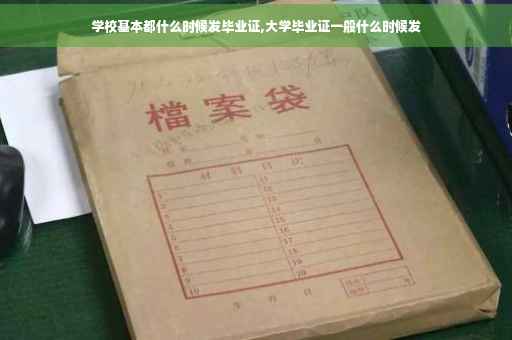 学校基本都什么时候发毕业证,大学毕业证一般什么时候发
檔案袋
材料目次
1 11
2 12
3 13
4 14
5 15
6 16
7 17
8 18
9 19
10 20
年 月 日